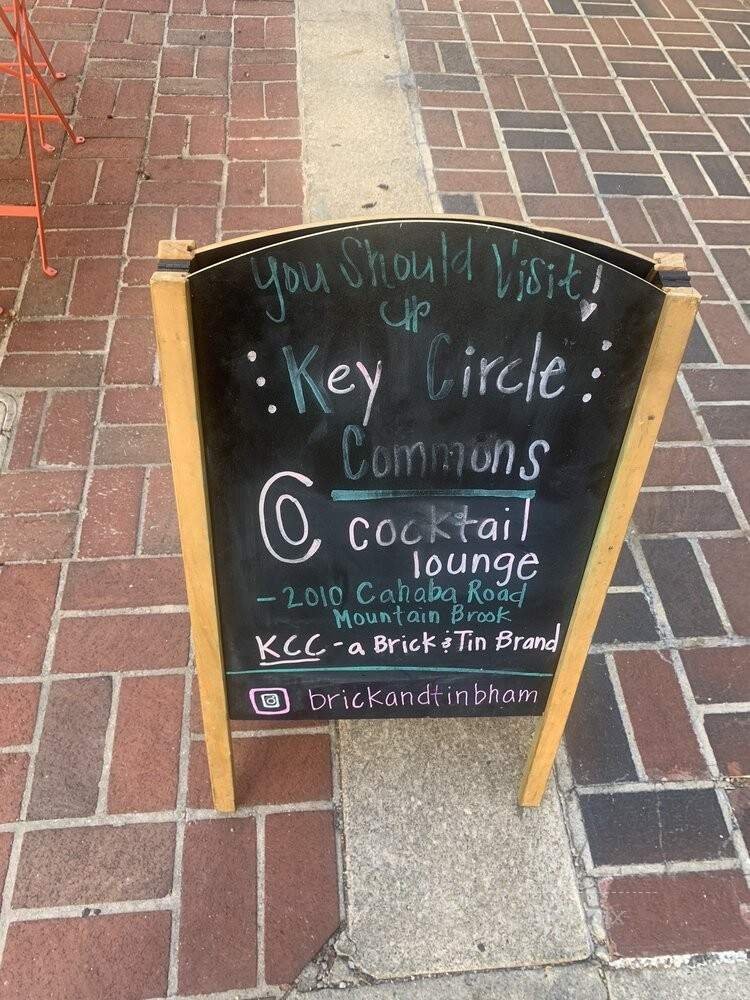 You Should Visit!
Key Circle
Commons
@ cocktail
lounge
- 2010 Cahaba Road
Mountain Brook
KCC - a Brick & Tin Brand
brickandtinbham